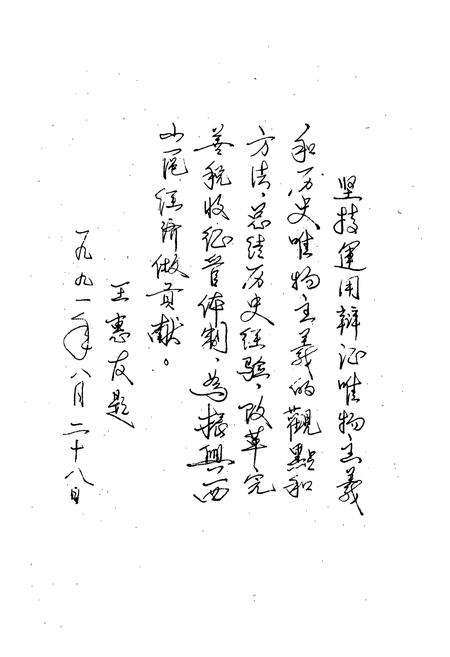 坚持運用辩证唯物主義
和历史唯物主義的觀點和
方法，总结历史经验，改革完
善税收征管体制，为振興西
山经济做貢献。
王惠友题
一九九一年八月二十八日